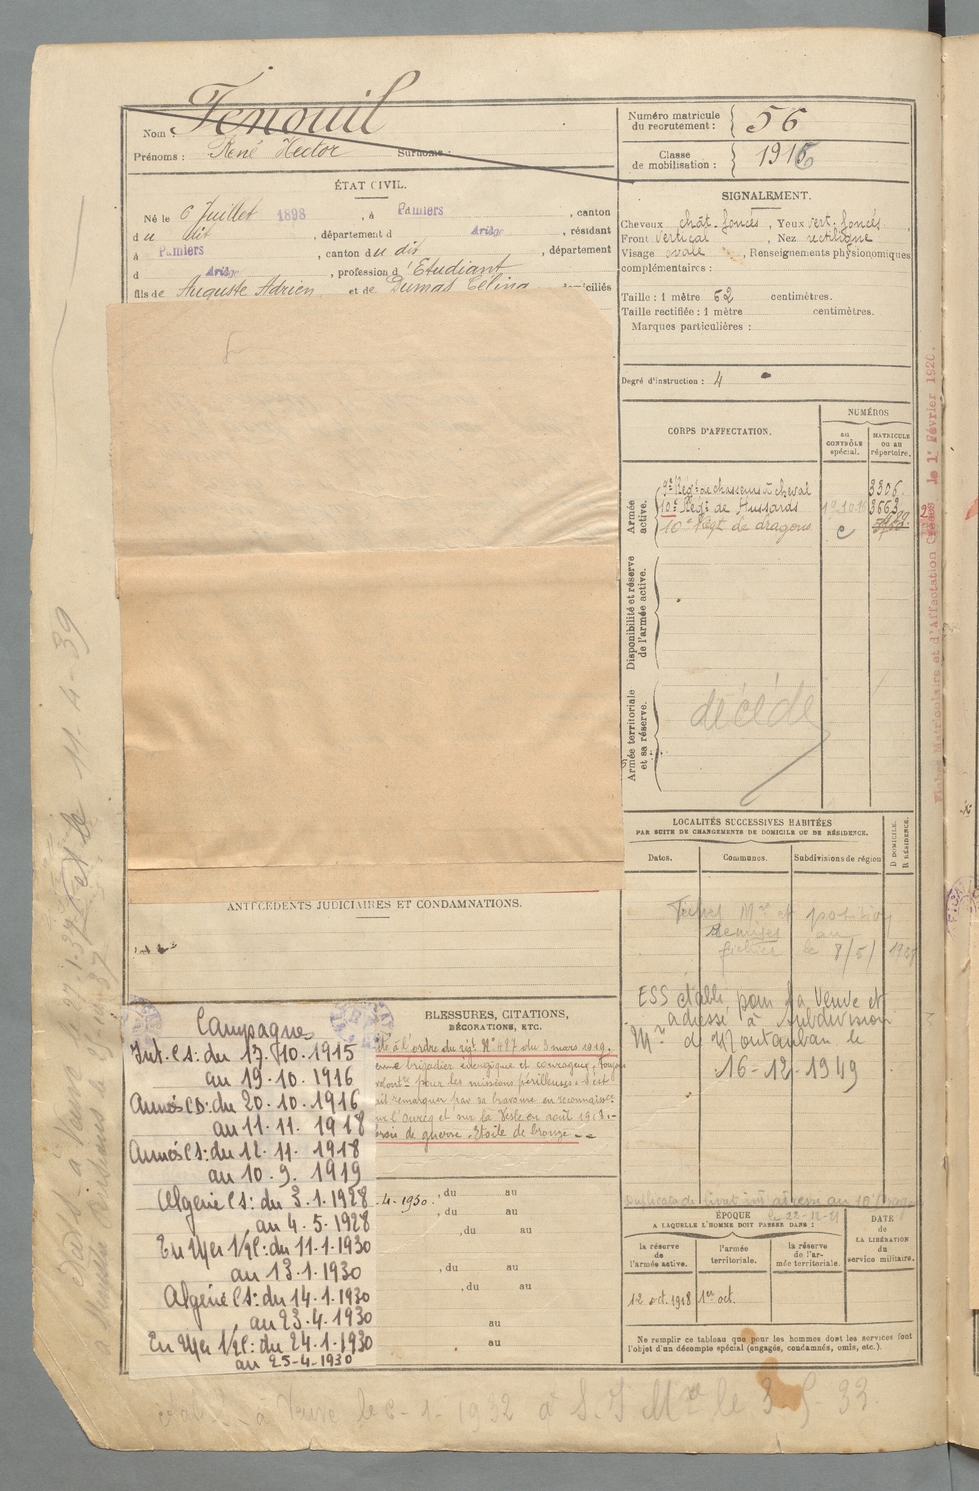 Nom : Fenouil
Prénoms : René Hector Surnoms :
ÉTAT CIVIL.
Né le 6 Juillet 1898, à Pamiers, canton
du dit, département d Ariège, résidant
à Pamiers, canton du dit, département
d Ariège, profession d'Etudiant
fils de Auguste Adrien et de Dumas Célina domiciliés
Numéro matricule
du recrutement : 56
Classe
de mobilisation : 1916
SIGNALEMENT.
Cheveux chât. foncés, Yeux vert foncés
Front vertical, Nez rectiligne
Visage ovale, Renseignements physionomiques
complémentaires :
Taille : 1 mètre 62 centimètres.
Taille rectifiée : 1 mètre centimètres.
Marques particulières :
Degré d'instruction : 4
CORPS D'AFFECTATION.
NUMÉROS
au
CONTRÔLE
spécial.
MATRICULE
ou au
répertoire.
Armée
active.
9e Régt de chasseurs à cheval 3306
10e Régt de Hussards 3663
10e Régt de dragons
Disponibilité et réserve
de l'armée active.
Armée territoriale
et sa réserve.
décédé
Matriculaire et d'Affectation le 1er Février 1920.
LOCALITÉS SUCCESSIVES HABITÉES
PAR SUITE DE CHANGEMENTS DE DOMICILE OU DE RÉSIDENCE.
Dates. Communes. Subdivisions de région
D DOMICILE.
R RÉSIDENCE.
Mle et position
Remises au
fichier le 8/5/
ESS établi pour la Veuve et
adressé à Subdivision
Mre de Montauban le
16-12-1949
Duplicata du livret
le 22-12-21
ÉPOQUE
A LAQUELLE L'HOMME DOIT PASSER DANS :
DATE
de
LA LIBÉRATION
du
service militaire.
la réserve
de
l'armée active.
l'armée
territoriale.
la réserve
de l'ar-
mée territoriale.
12 oct. 1918 1er oct.
Ne remplir ce tableau que pour les hommes dont les services font
l'objet d'un décompte spécial (engagés, condamnés, omis, etc.).
ANTÉCÉDENTS JUDICIAIRES ET CONDAMNATIONS.
BLESSURES, CITATIONS,
DÉCORATIONS, ETC.
à l'ordre du régt N° 487 du 3 mars 1919.
brigadier énergique et courageux, toujours
volontre pour les missions périlleuses. S'est
fait remarquer par sa bravoure en reconnaissce
sur l'Ourcq et sur la Vesle en août 1918.-
Croix de guerre. Etoile de bronze.
4-1930., du au
, du au
, du au
, du au
, du au
au
au
Campagnes
Int. CS: du 17.10.1915
au 19.10.1916
Armées CD: du 20.10.1916
au 11.11.1918
Armées CS: du 12.11.1918
au 10.9.1919
Algérie CS: du 3.1.1928
au 4.5.1928
En Mer 1/2C: du 11-1-1930
au 13.1.1930
Algérie CS: du 14.1.1930
au 23.4.1930
En Mer 1/2C: du 24-1-1930
au 25-4-1930
à Veuve le 27.1.37
11-4-39
à Veuve le 6-1-1932 à S. I Mre le 3-5-33